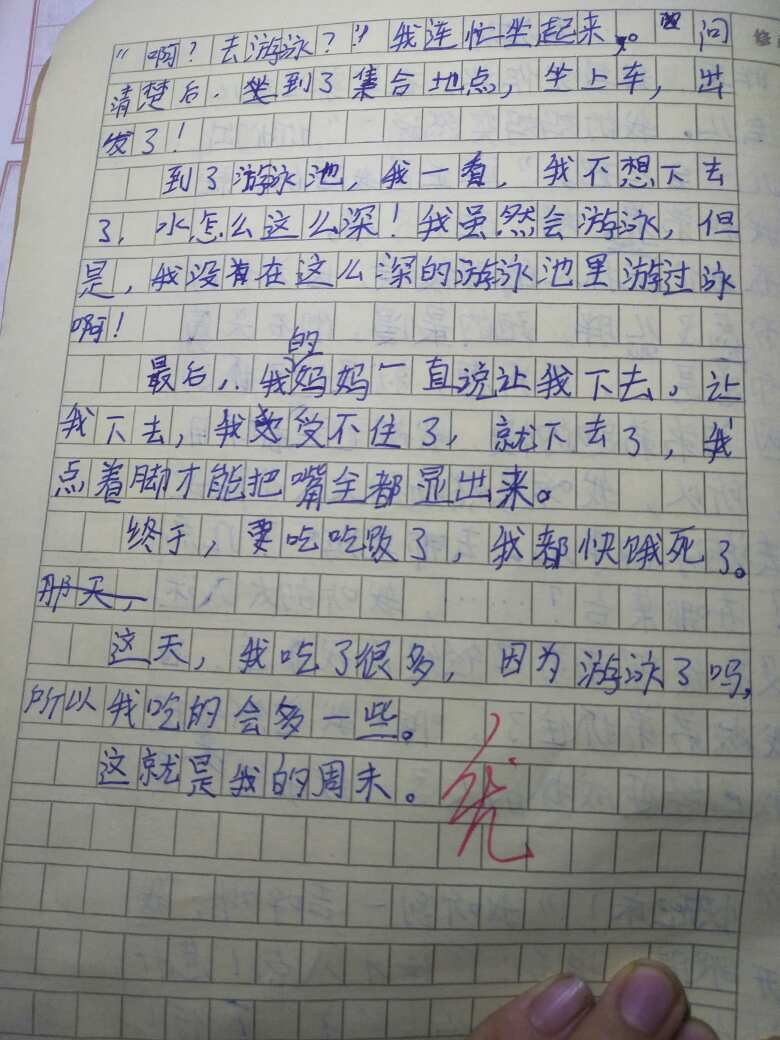 “啊？去游泳？”我连忙坐起来。问
清楚后.坐到了集合地点，坐上车，出
发了！
到了游泳池，我一看，我不想下去
了，水怎么这么深！我虽然会游泳，但
是，我没有在这么深的游泳池里游过泳
啊！
最后，我的妈妈一直说让我下去，让
我下去，我忽受不住了，就下去了，我
点着脚才能把嘴全都显出来。
终于，要吃吃饭了，我都快饿死了。
那天，
这天，我吃了很多，因为游泳了吗，
所以我吃的会多一些。
这就是我的周末。优